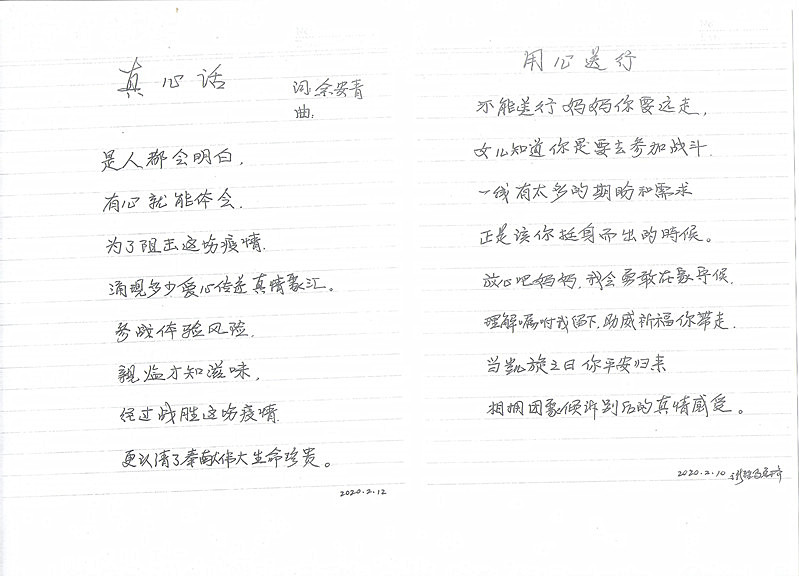 真心话
词 余安青
曲:
是人都会明白，
有心就能体会.
为了阻击这场疫情.
涌现多少爱心传递真情聚汇。
参战体验风险.
亲临才知滋味，
经过战胜这场疫情.
更认清了奉献伟大生命珍贵。
2020.2.12
用心送行
不能送行妈妈你要远走，
女儿知道你是要去参加战斗.
一线有太多的期盼和需求
正是该你挺身而出的時候。
放心吧妈妈.我会勇敢在家守候.
理解嘱咐我留下.助威祈福你带走.
当凯旋之日你平安归来
相拥团聚倾诉别后的真情感受。
2020.2.10